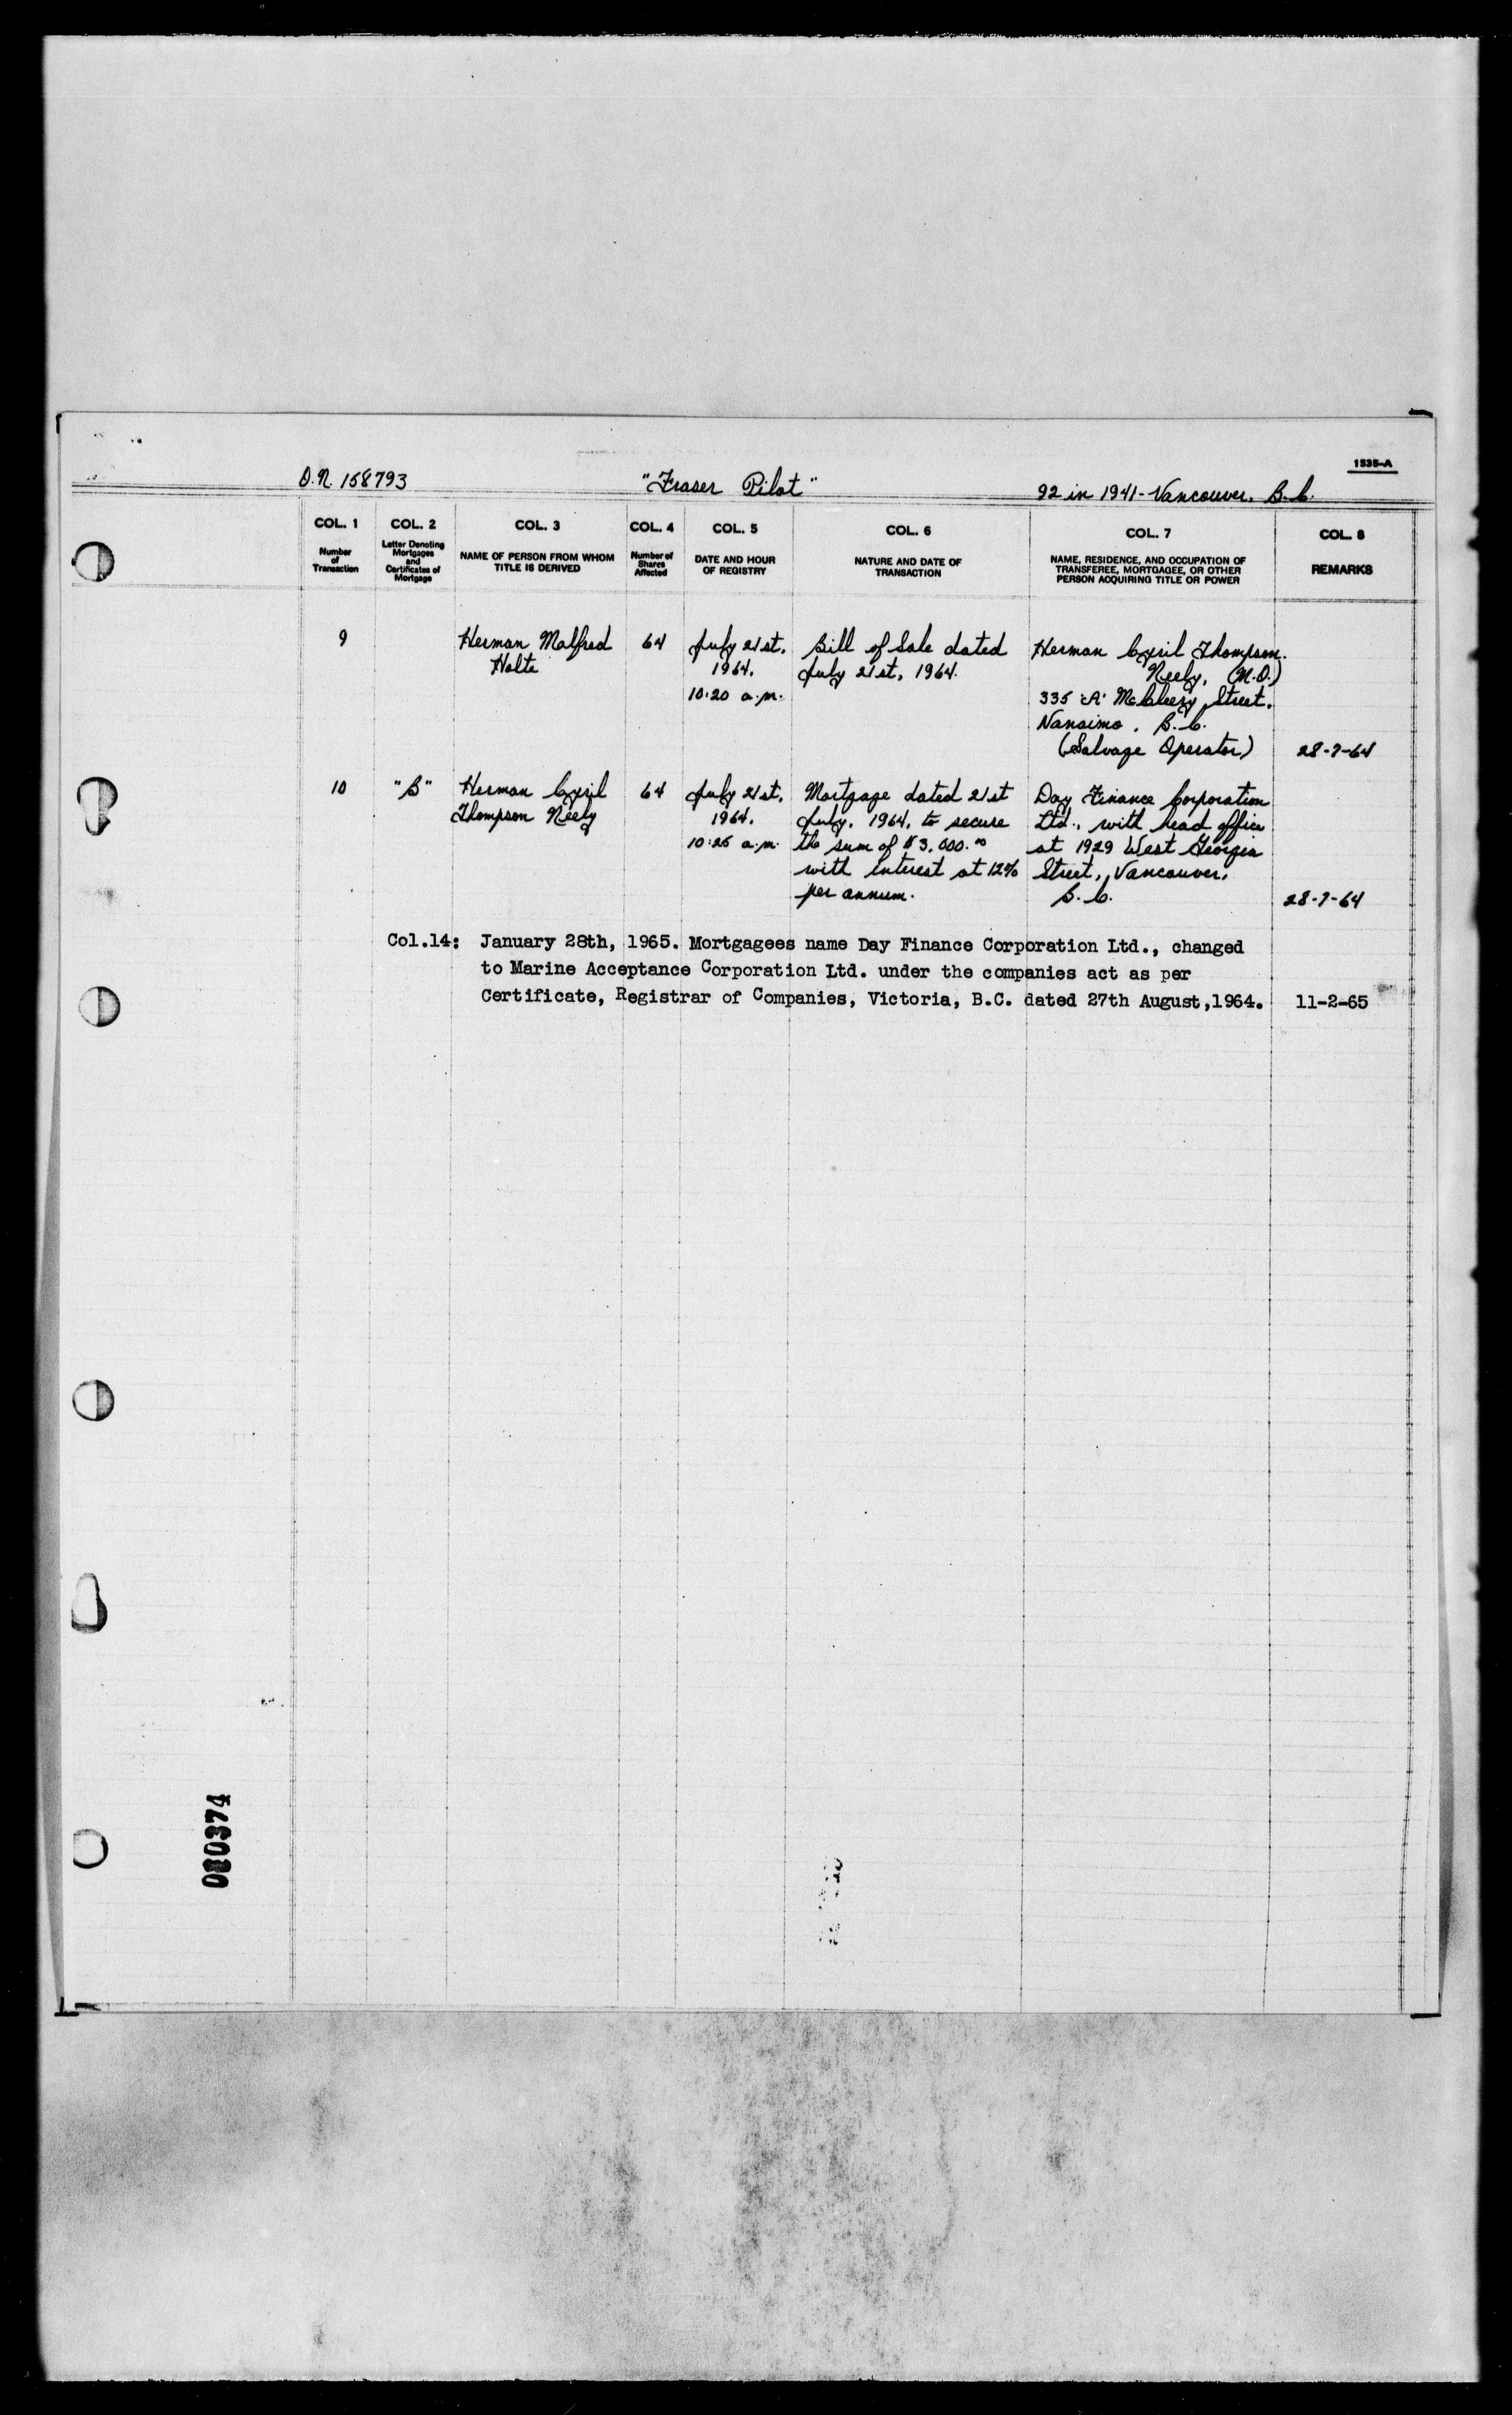 1535-A
O.N. 158793 "Fraser Pilot" 92 in 1941 - Vancouver, B.C.
COL. 1 COL. 2 COL. 3 COL. 4 COL. 5 COL. 6 COL. 7 COL. 8
Number of Transaction
Letter Denoting Mortgages and Certificates of Mortgage
NAME OF PERSON FROM WHOM TITLE IS DERIVED
Number of Shares Affected
DATE AND HOUR OF REGISTRY
NATURE AND DATE OF TRANSACTION
NAME, RESIDENCE, AND OCCUPATION OF TRANSFEREE, MORTGAGEE, OR OTHER PERSON ACQUIRING TITLE OR POWER
REMARKS
9 Herman Malfred 64 July 21st, Bill of Sale dated Herman Cyril Thompson
Holte 1964. July 21st, 1964. Neely, (M.O.)
10:20 a.m. 335 'A' Street,
Nanaimo, B.C.
(Salvage Operator) 28-7-64
10 "B" Herman Cyril 64 July 21st, Mortgage dated 21st Day Finance Corporation
Thompson Neely 1964. July, 1964, to secure Ltd., with head office
10:25 a.m. the sum of $3,000.00 at 1929 West Georgia
with interest at 12% Street, Vancouver,
per annum. B.C. 28-7-64
Col.14: January 28th, 1965. Mortgagees name Day Finance Corporation Ltd., changed
to Marine Acceptance Corporation Ltd. under the companies act as per
Certificate, Registrar of Companies, Victoria, B.C. dated 27th August,1964. 11-2-65
080374